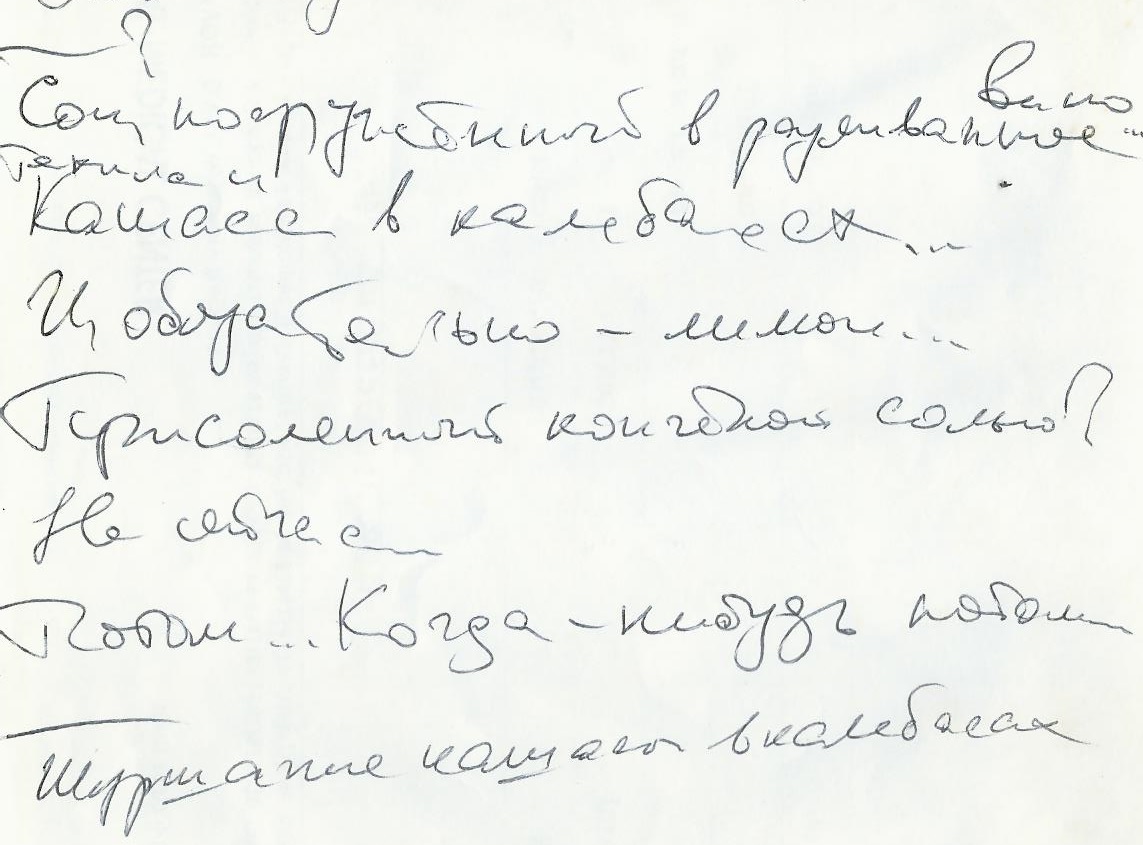 ?
вино
Сон, погружённый в разливанное...
Текила и
Кашасс в калебасах...
И, обязательно – лимон...
Присоленный солью?
Не сейчас
Потом... Когда-нибудь потом
Шуршание кашасы в калебасах